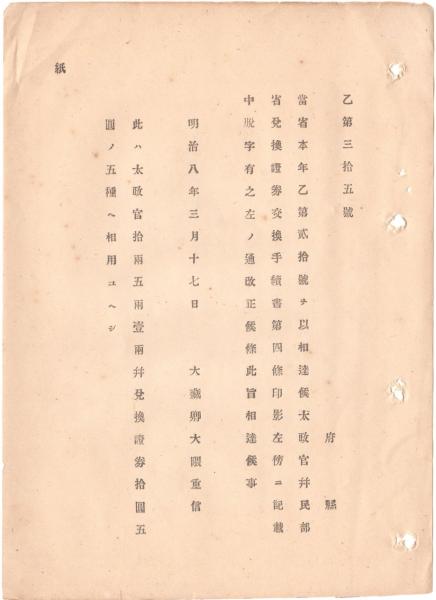 乙第三拾五號
府縣
當省本年乙第貳拾號ヲ以相達候太政官幷民部
省兌換證券交換手續書第四條印影左傍ニ記載
中脫字有之左ノ通改正候條此旨相達候事
明治八年三月十七日　大藏卿大隈重信
此ハ太政官拾兩五兩壹兩幷兌換證券拾圓五
圓ノ五種ヘ相用ユヘシ
紙